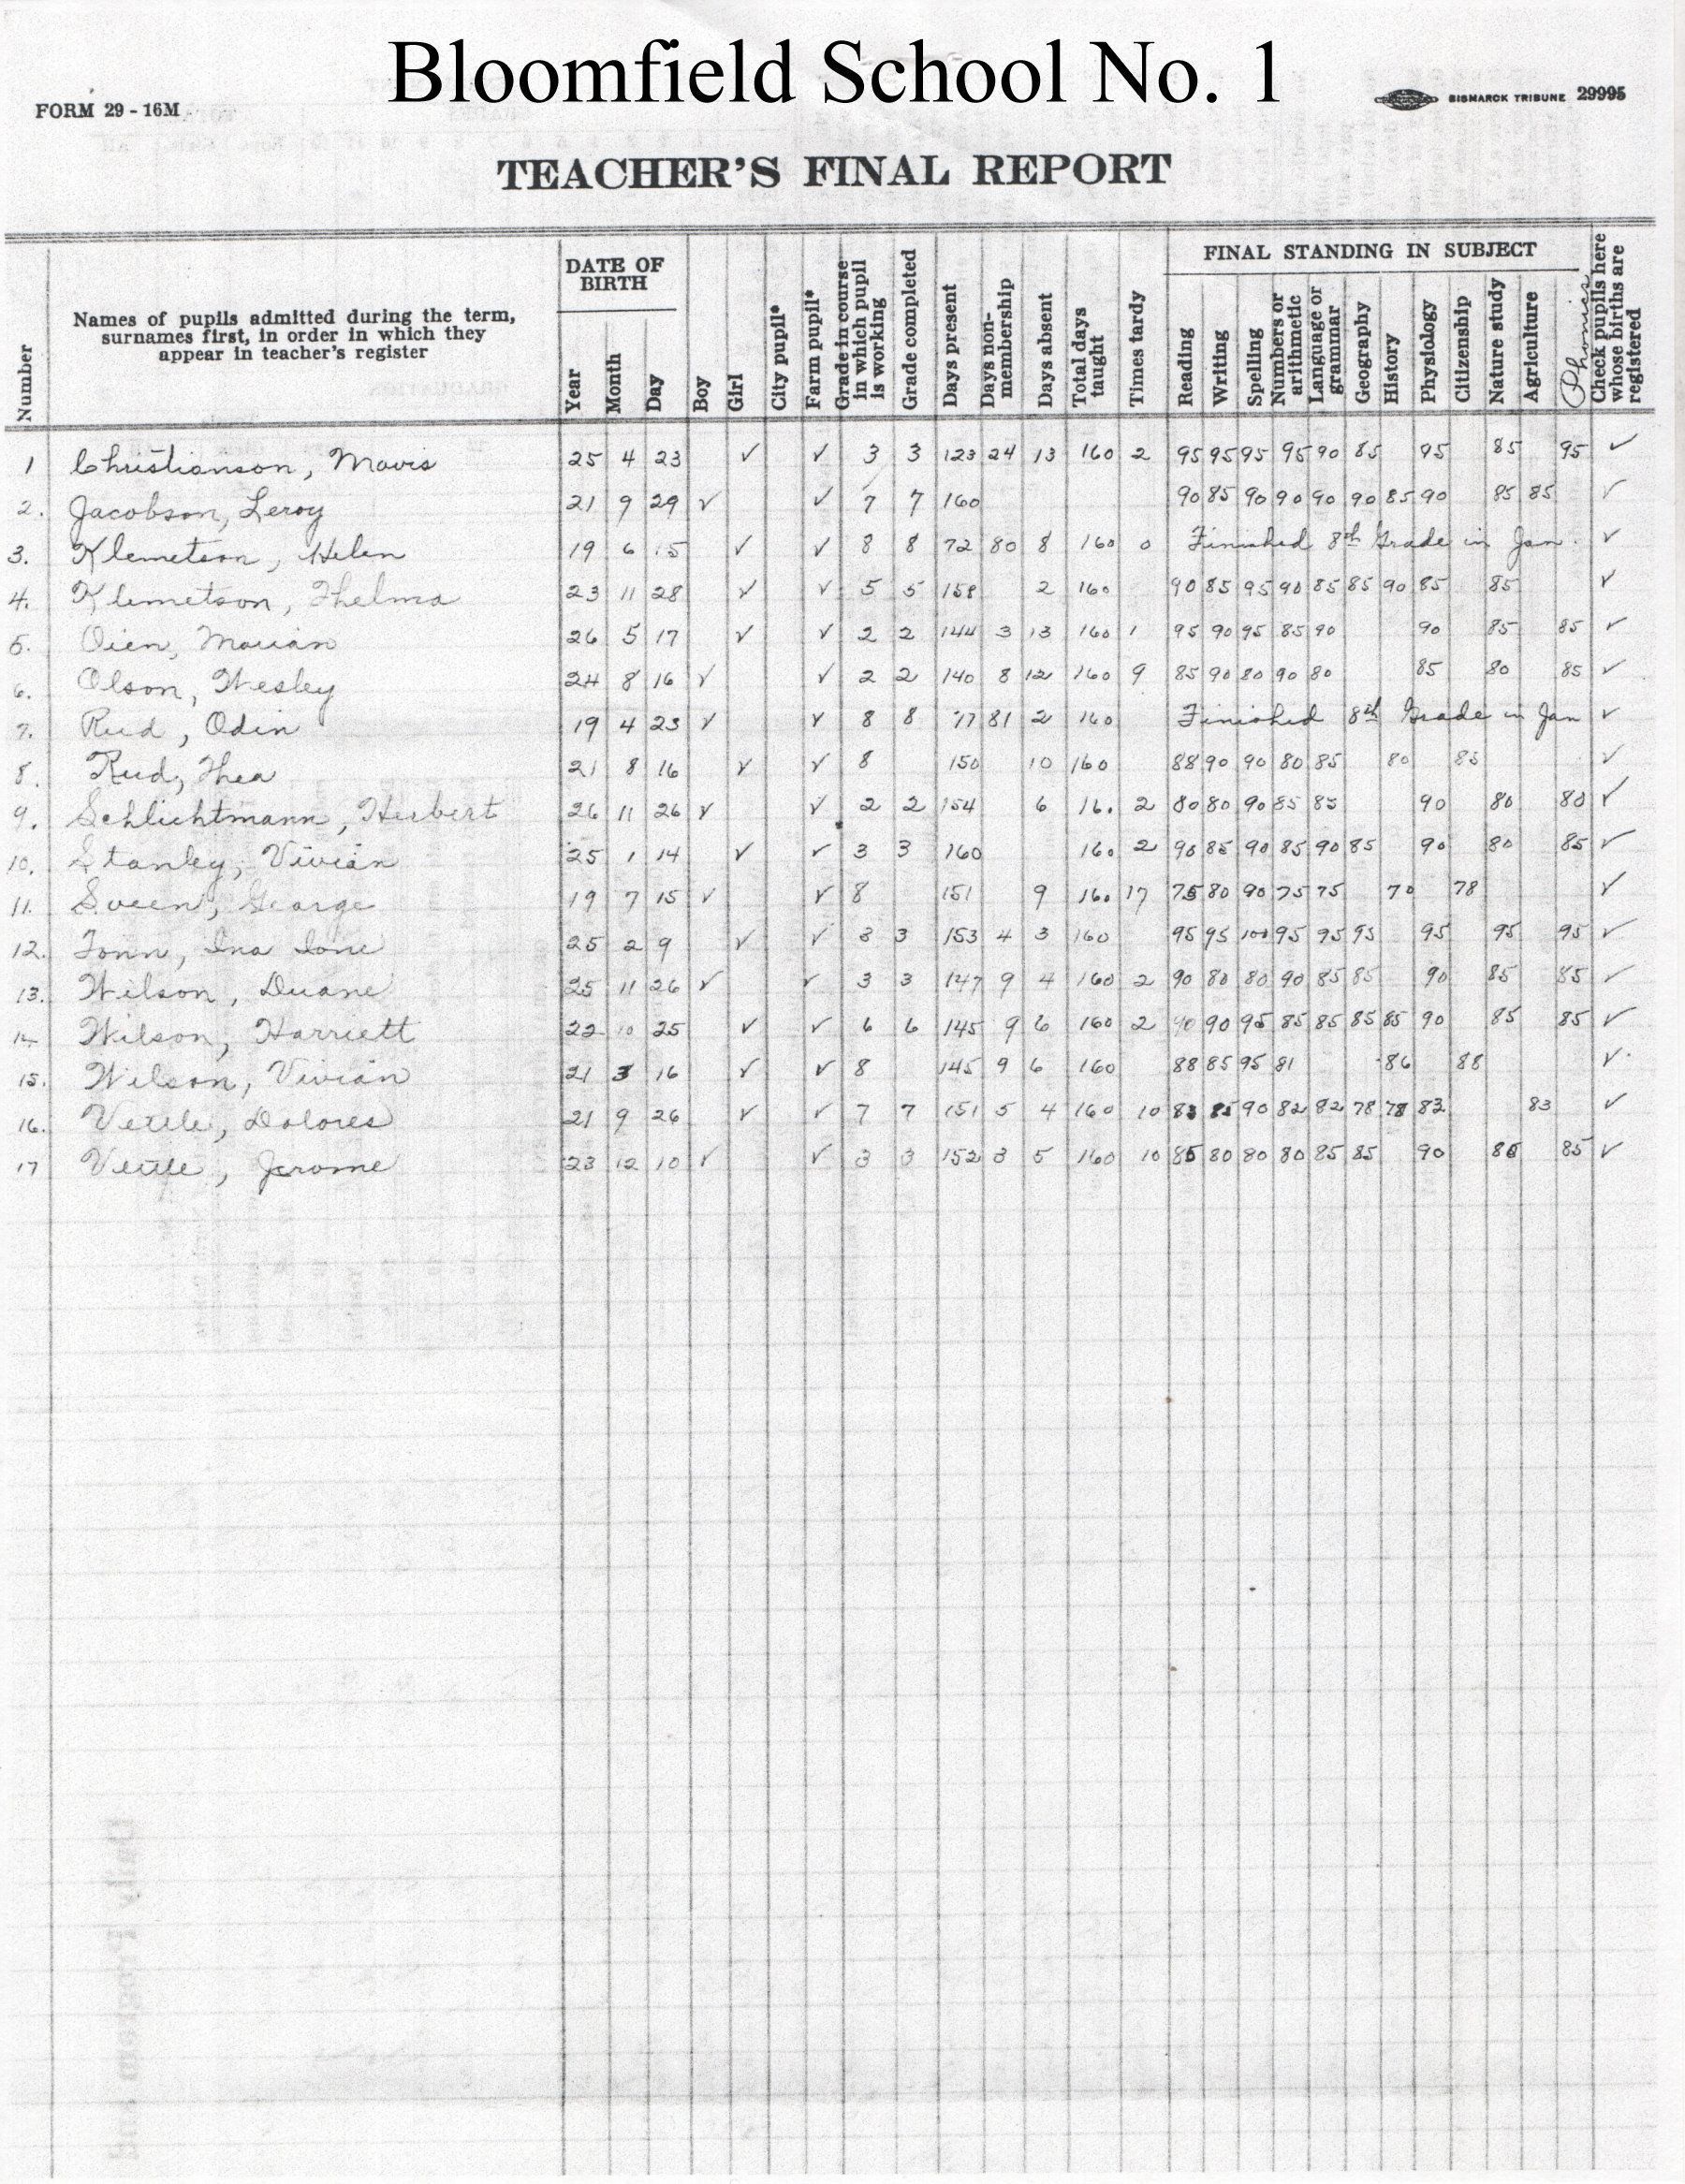 Bloomfield School No. 1
FORM 29 - 16M
BISMARCK TRIBUNE 29995
TEACHER'S FINAL REPORT
Number
Names of pupils admitted during the term,
surnames first, in order in which they
appear in teacher's register
DATE OF
BIRTH
Year
Month
Day
Boy
Girl
City pupil*
Farm pupil*
Grade in course
in which pupil
is working
Grade completed
Days present
Days non-
membership
Days absent
Total days
taught
Times tardy
FINAL STANDING IN SUBJECT
Reading
Writing
Spelling
Numbers or
arithmetic
Language or
grammar
Geography
History
Physiology
Citizenship
Nature study
Agriculture
Phonics
Check pupils here
whose births are
registered
1 Christianson, Mavis 25 4 23 ✓ ✓ 3 3 123 24 13 160 2 95 95 95 95 90 85 95 85 95 ✓
2. Jacobson, Leroy 21 9 29 ✓ ✓ 7 7 160 90 85 90 90 90 90 85 90 85 85 ✓
3. Klemetson, Helen 19 6 15 ✓ ✓ 8 8 72 80 8 160 0 Finished 8th Grade in Jan. ✓
4. Klemetson, Thelma 23 11 28 ✓ ✓ 5 5 158 2 160 90 85 95 90 85 85 90 85 85 ✓
5. Oien, Marian 26 5 17 ✓ ✓ 2 2 144 3 13 160 1 95 90 95 85 90 90 85 85 ✓
6. Olson, Wesley 24 8 16 ✓ ✓ 2 2 140 8 12 160 9 85 90 80 90 80 85 80 85 ✓
7. Rud, Odin 19 4 23 ✓ ✓ 8 8 77 81 2 160 Finished 8th Grade in Jan ✓
8. Rud, Thea 21 8 16 ✓ ✓ 8 150 10 160 88 90 90 80 85 80 85 ✓
9. Schlichtmann, Herbert 26 11 26 ✓ ✓ 2 2 154 6 160 2 80 80 90 85 85 90 80 80 ✓
10. Stanley, Vivian 25 1 14 ✓ ✓ 3 3 160 160 2 90 85 90 85 90 85 90 80 85 ✓
11. Sveen, George 19 7 15 ✓ ✓ 8 151 9 160 17 75 80 90 75 75 70 78 ✓
12. Tonn, Ina Ione 25 2 9 ✓ ✓ 3 3 153 4 3 160 95 95 100 95 95 95 95 95 95 ✓
13. Wilson, Duane 25 11 26 ✓ ✓ 3 3 147 9 4 160 2 90 80 80 90 85 85 90 85 85 ✓
14 Wilson, Harriett 22 10 25 ✓ ✓ 6 6 145 9 6 160 2 90 90 95 85 85 85 85 90 85 85 ✓
15. Wilson, Vivian 21 3 16 ✓ ✓ 8 145 9 6 160 88 85 95 81 86 88 ✓
16. Vettle, Dolores 21 9 26 ✓ ✓ 7 7 151 5 4 160 10 83 85 90 82 82 78 78 82 83 ✓
17 Vettle, Jerome 23 12 10 ✓ ✓ 3 3 152 3 5 160 10 85 80 80 80 85 85 90 80 85 ✓